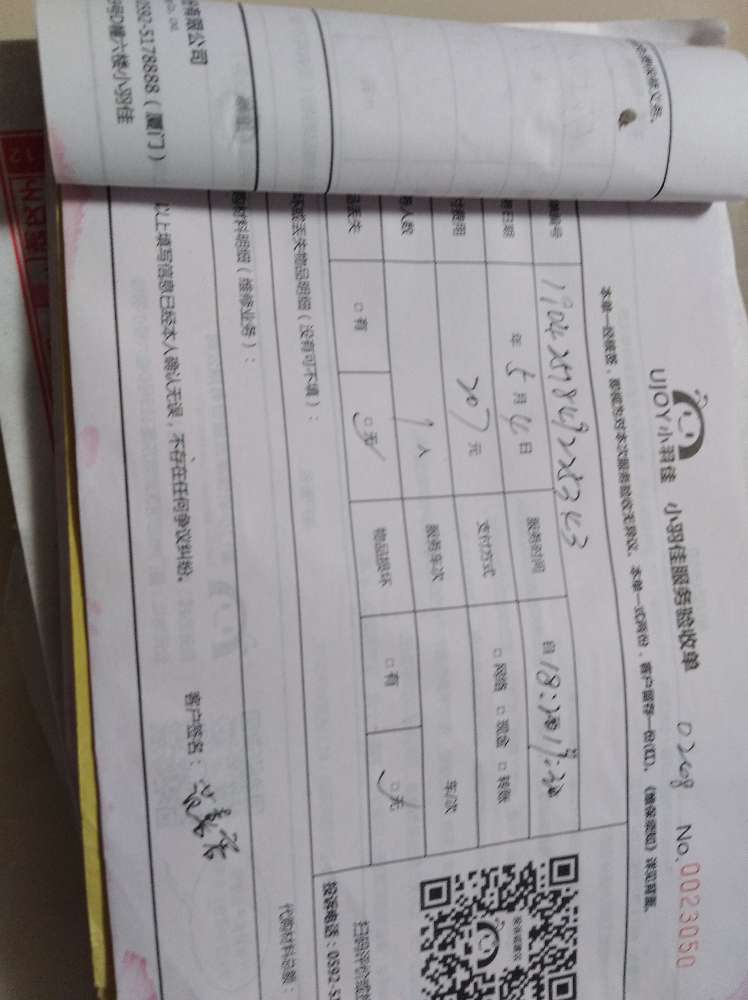 UJOY小羽佳 小羽佳服务验收单 0268 No.0023050
本单一经核签，即视为对本次服务验收无异议。本单一式两份，客户留存一份(红)。《维保须知》详见背面。
编号 1904257849225343
日期 年 5月4日 服务时间 自18:
费用 207元 支付方式 □网络 □现金 □转账
人数 1人 服务车次 车/次
丢失 □有 □无 物品损坏 □有 □无
坏或丢失物品明细（没有可不填）：
购材料明细（维修业务）： 代购材料总额：
以上填写信息已经本人确认无误，不存在任何争议纠纷。 客户签名：
投诉建议
扫码评价或投
投诉电话：0592-5
有限公司
0592-5178888（厦门）
号D幢六楼小羽佳